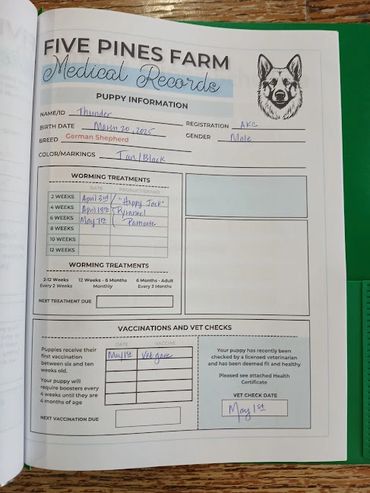 FIVE PINES FARM
Medical Records
PUPPY INFORMATION
NAME/ID Thunder
BIRTH DATE March 20, 2025 REGISTRATION AKC
BREED German Shepherd GENDER Male
COLOR/MARKINGS Tan/Black
WORMING TREATMENTS
DATE
2 WEEKS April 3rd "Happy Jack"
4 WEEKS April 18th Pyrantel
6 WEEKS May 1st Pamoate
8 WEEKS
10 WEEKS
12 WEEKS
WORMING TREATMENTS
2-12 Weeks 12 Weeks - 6 Months 6 Months - Adult
Every 2 Weeks Monthly Every 3 Months
NEXT TREATMENT DUE
VACCINATIONS AND VET CHECKS
DATE VACCINE
May 1st Vet gave
Puppies receive their
first vaccination
between six and ten
weeks old.
Your puppy will
require boosters every
4 weeks until they are
4 months of age
NEXT VACCINATION DUE
Your puppy has recently been
checked by a licensed veterinarian
and has been deemed fit and healthy
Please see attached Health
Certificate
VET CHECK DATE
May 1st